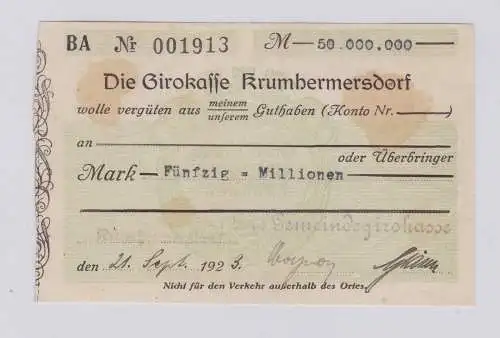 BA № 001913 M— 50.000.000 —
Die Girokasse Krumhermersdorf
wolle vergüten aus meinem
unserem Guthaben (Konto Nr.———)
an
oder Überbringer
Mark — Fünfzig = Millionen
Gemeindegirokasse
den 21. Sept. 1923.
Nicht für den Verkehr außerhalb des Ortes.